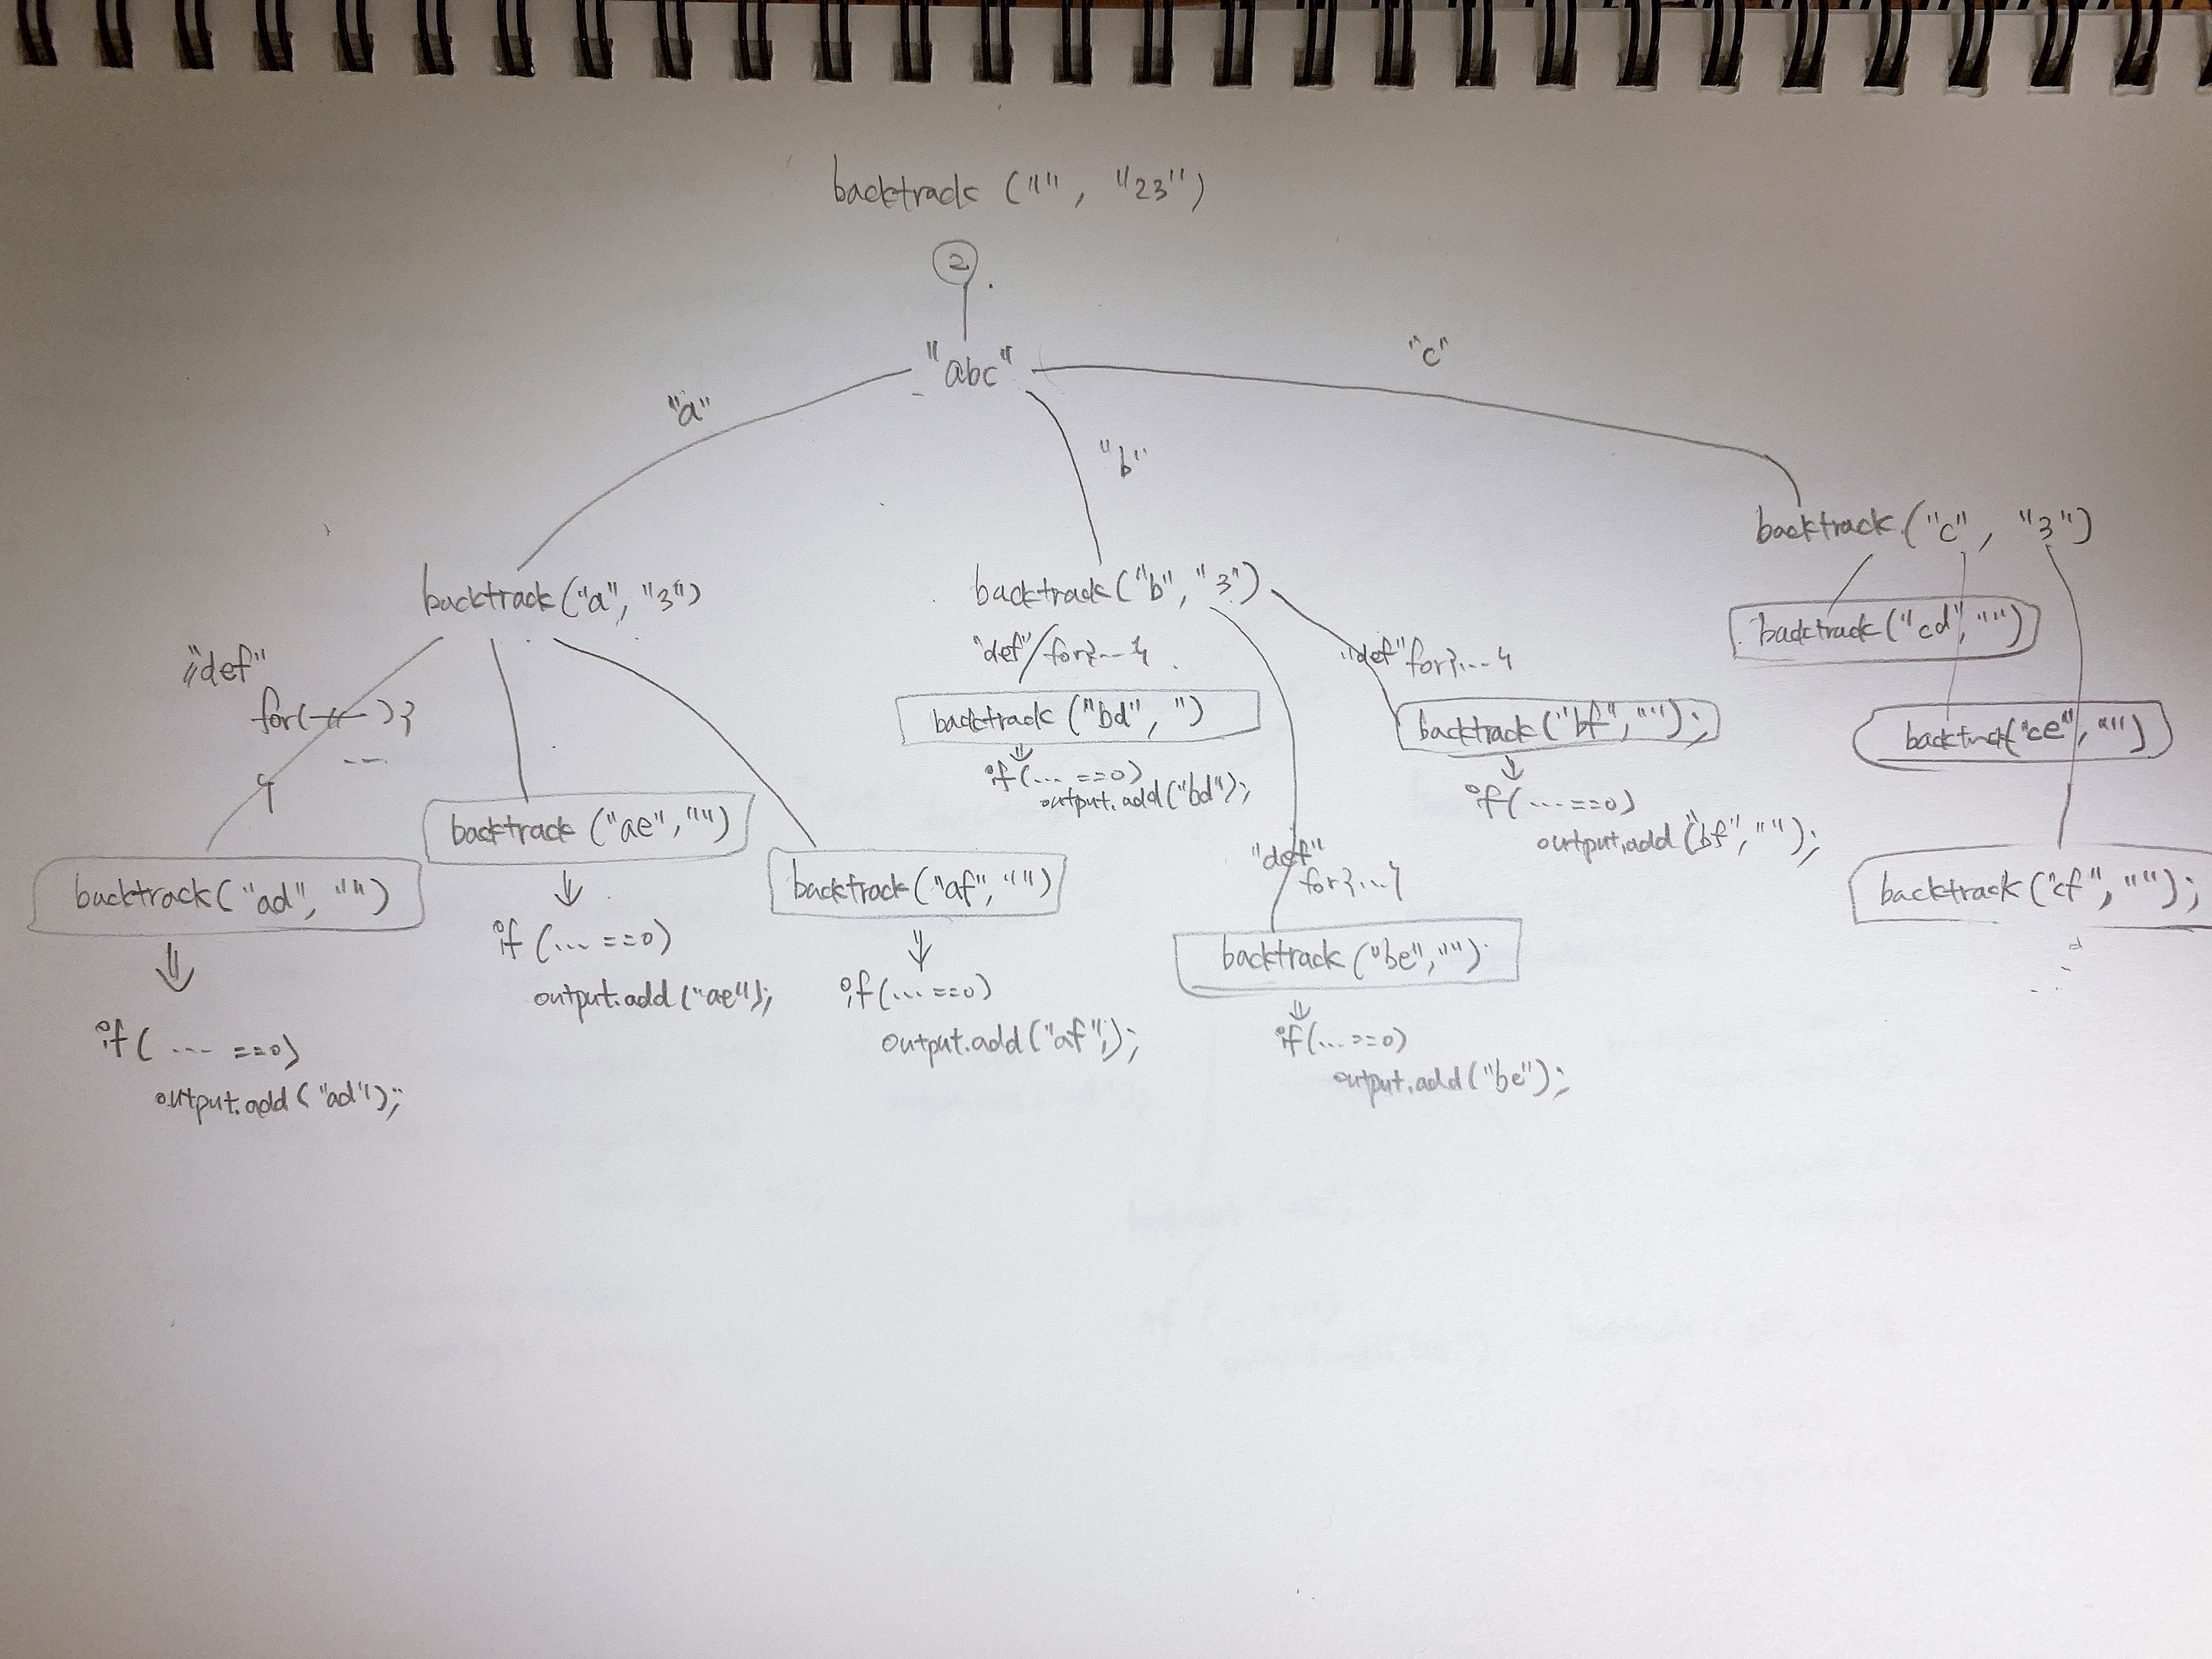 backtrack ("", "23")
2
"abc"
"a"
"b"
"c"
backtrack("a", "3")
"def"
for( --- ) {
---
}
backtrack("ad", "")
if( --- ==0)
output.add("ad");
backtrack ("ae", "")
if (... ==0)
output.add("ae");
backtrack("af", "")
if(... ==0)
output.add("af");
backtrack("b", "3")
"def" for{...}
backtrack ("bd", ")
if(... ==0)
output.add("bd");
"def"
for{...}
backtrack ("be", "")
if(... ==0)
output.add("be");
"def" for{...}
backtrack("bf", "");
if(... ==0)
output.add("bf", "");
backtrack ("c", "3")
backtrack("cd", "")
backtrack("ce", "")
backtrack("cf", "");